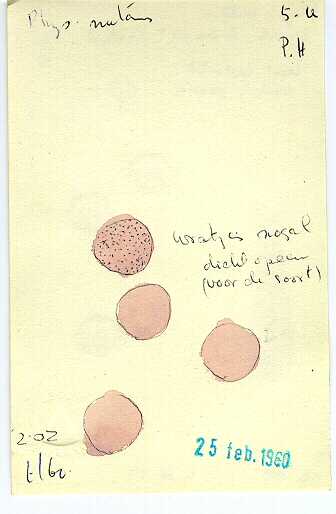 Phys. nutans
P.H
wratjes nogal
dicht opeen
(voor de soort)
25 feb. 1960